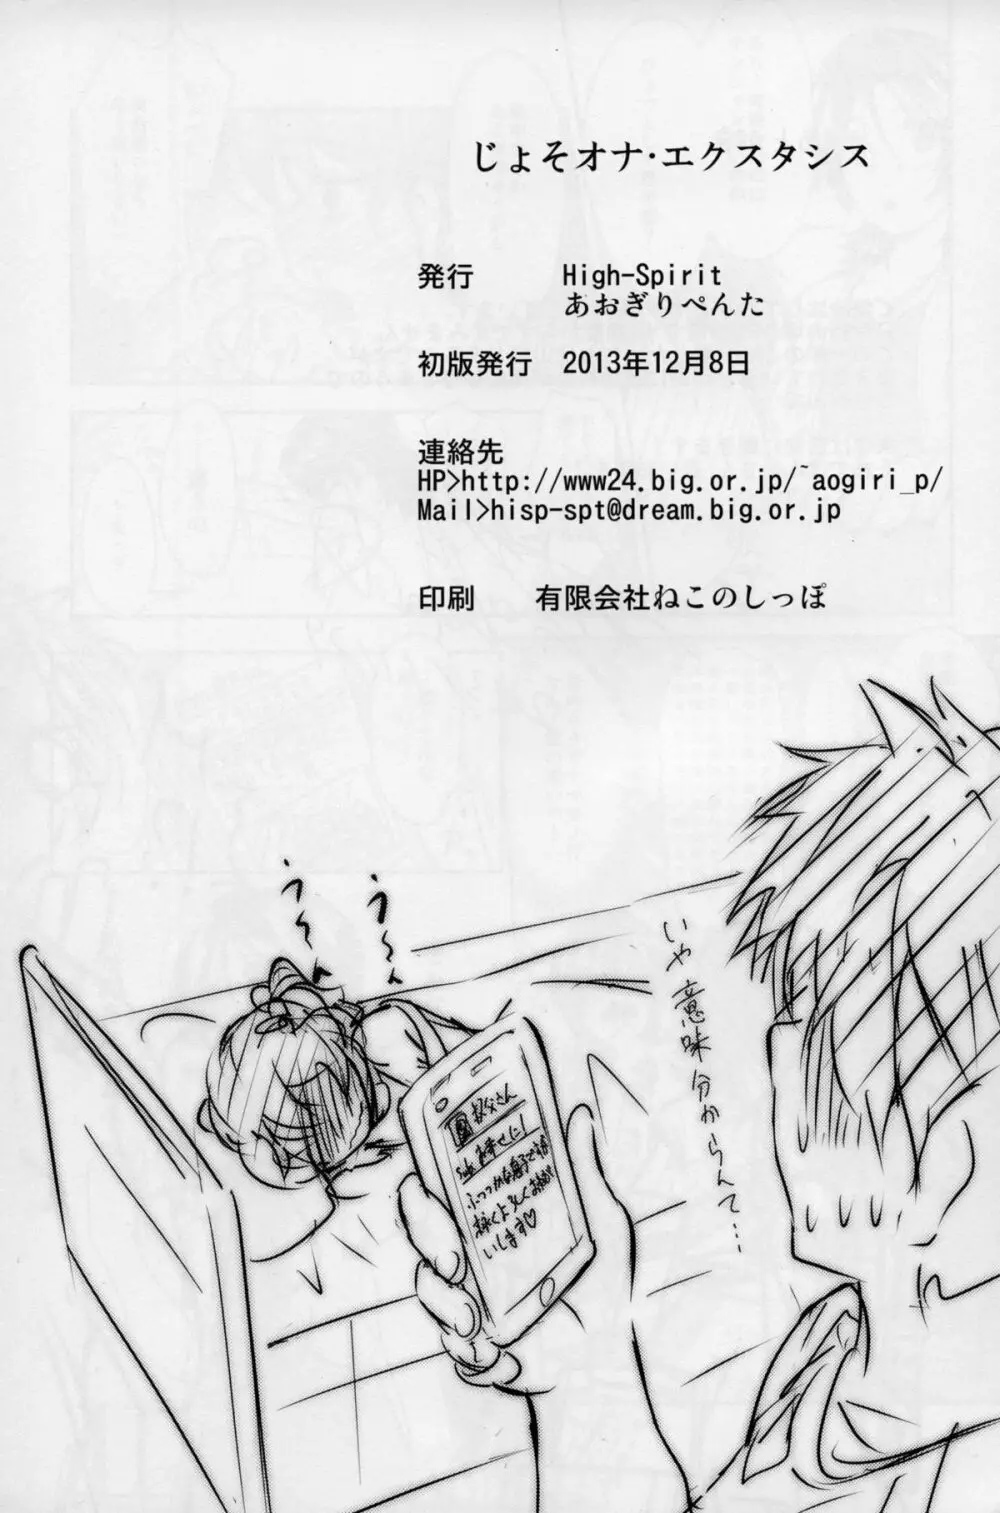 じょそオナ・エクスタシス
発行 High-Spirit
あおぎりぺんた
初版発行 2013年12月8日
連絡先
HP>http://www24.big.or.jp/~aogiri_p/
Mail>hisp-spt@dream.big.or.jp
印刷 有限会社ねこのしっぽ
う~
う~
いや意味分からんて…
叔父さん
Sub お幸せに!
ふつつかな息子ですが
末永くよろしくお願
いします♡